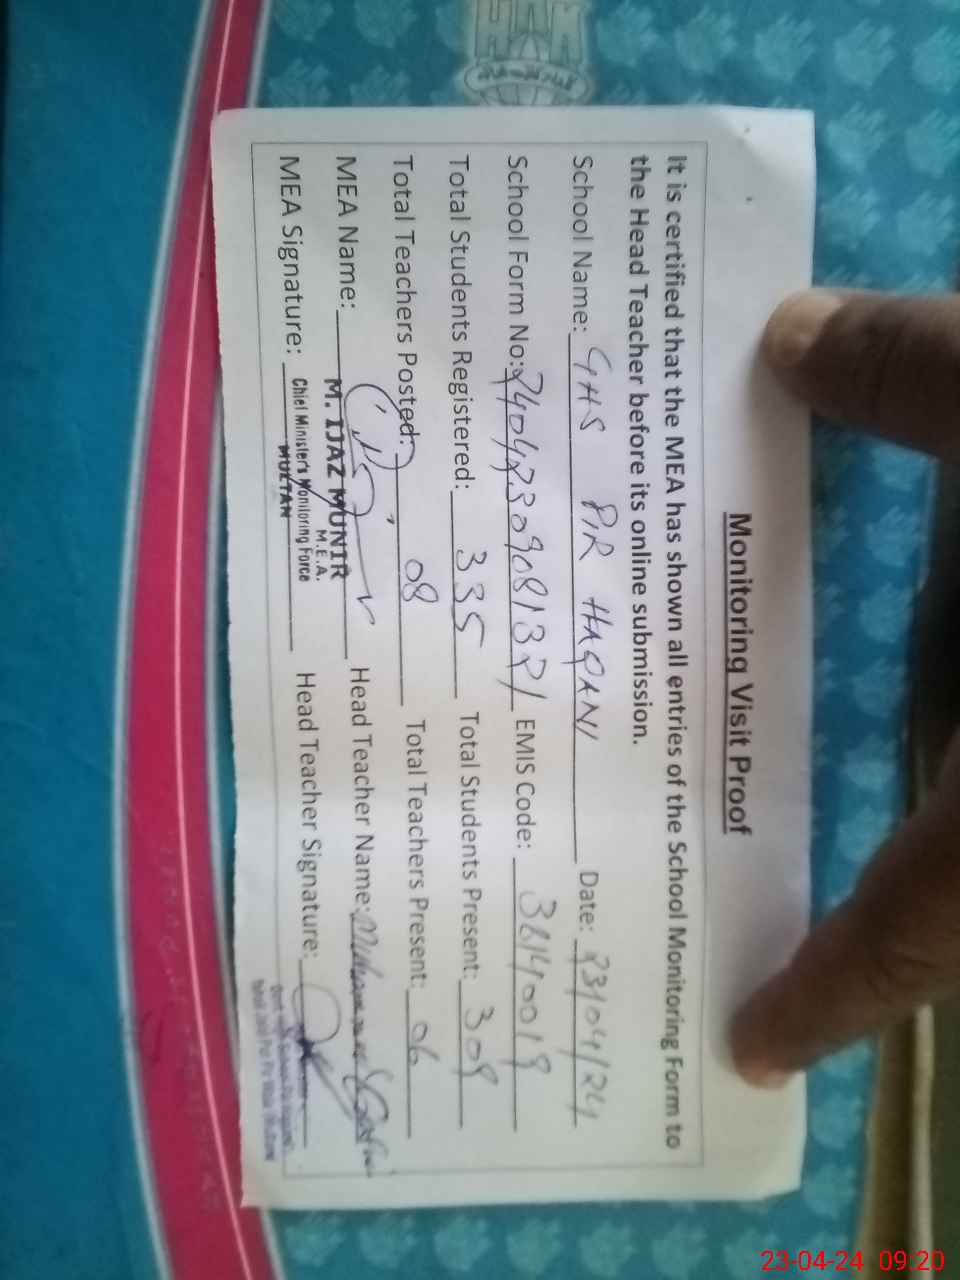 Monitoring Visit Proof
It is certified that the MEA has shown all entries of the School Monitoring Form to
the Head Teacher before its online submission.
School Name: GHS PIR HAQANI Date: 23/04/24
School Form No: EMIS Code: 36140019
Total Students Registered: 335 Total Students Present: 309
Total Teachers Posted: 08 Total Teachers Present: 06
MEA Name: Head Teacher Name: Muhammad
M. IJAZ MUNIR
M.E.A.
MEA Signature: Head Teacher Signature:
Chief Minister's Monitoring Force
MULTAN
23-04-24 09:20